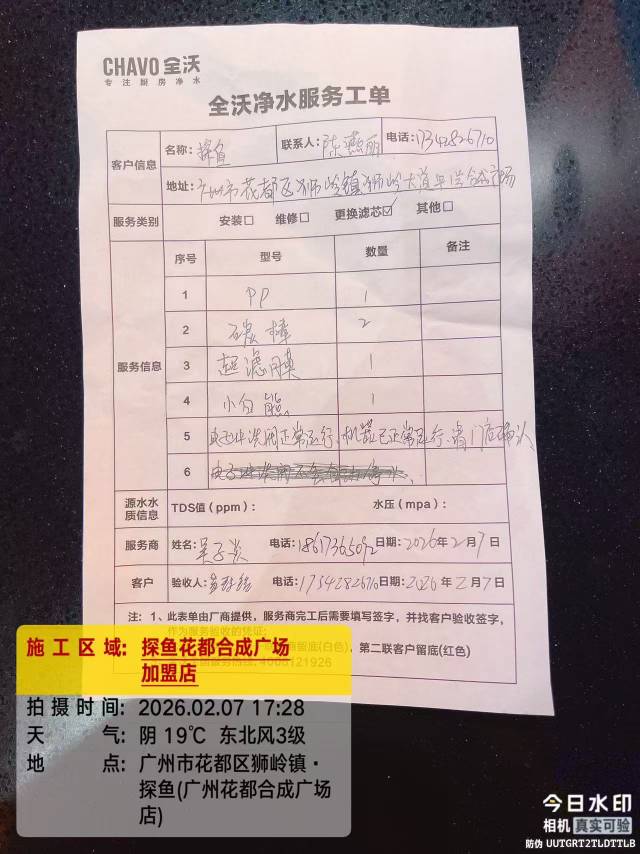 CHAVO 全沃
专注厨房净水
全沃净水服务工单
客户信息
名称: 探鱼 联系人: 陈燕丽 电话: 17342826710
地址: 广州市花都区狮岭镇狮岭大道
服务类别 安装□ 维修□ 更换滤芯☑ 其他□
服务信息
序号 型号 数量 备注
1 PP 1
2 碳棒 2
3 超滤膜 1
4 小白熊 1
5 正常运行,机器已正常运行,请门店确认
6
源水水质信息 TDS值(ppm): 水压(mpa):
服务商 姓名: 电话: 18617365092 日期: 2026年2月7日
客户 验收人: 电话: 日期: 2026年2月7日
注: 1、此表单由厂商提供,服务商完工后需要填写签字,并找客户验收签字,
作为服务验收的凭证;
留底(白色),第二联客户留底(红色)
4006121926
施工区域: 探鱼花都合成广场
加盟店
拍摄时间: 2026.02.07 17:28
天气: 阴 19℃ 东北风3级
地点: 广州市花都区狮岭镇·
探鱼(广州花都合成广场
店)
今日水印
相机 真实可验
防伪 UUTGRT2TLDTTLB